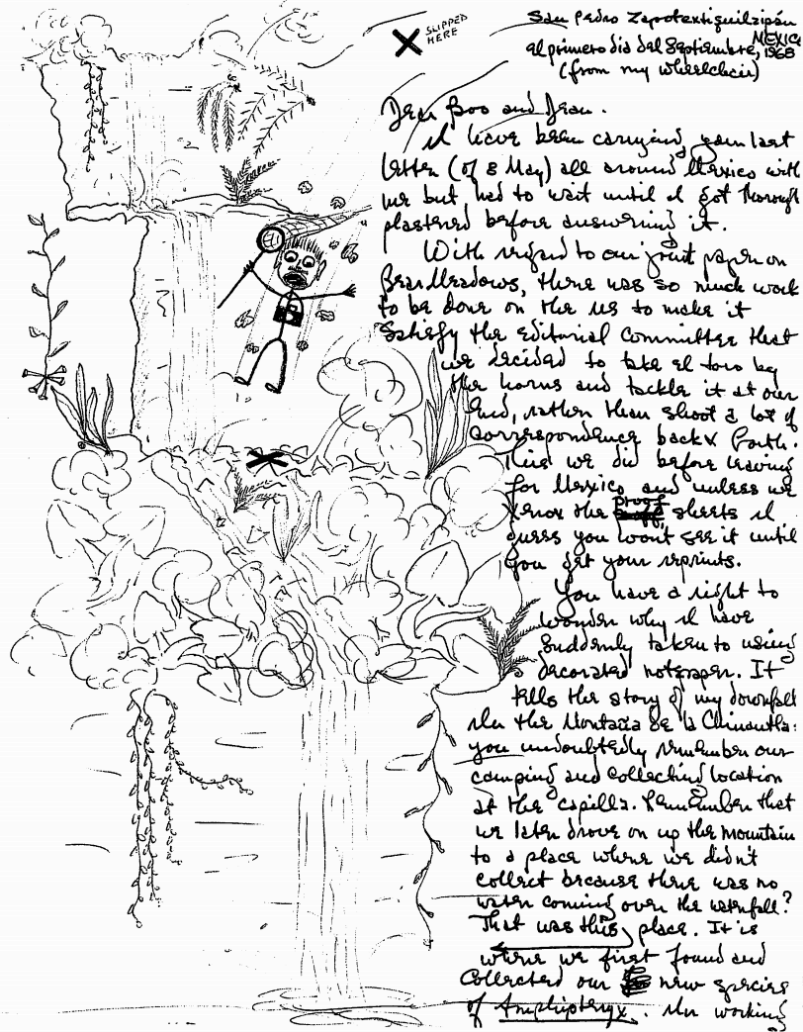 SLIPPED
HERE
San Pedro Zapotextiquilzipán
MEXICO
al primero dia del Septiembre, 1968
(from my wheelchair)
Dear Boo and Jean.
I have been carrying your last
letter (of 8 May) all around Mexico with
me but had to wait until I got thorough
plastered before answering it.
With regard to our joint paper on
Bear Meadows, there was so much work
to be done on the MS to make it
satisfy the editorial committee that
we decided to take el toro by
the horns and tackle it at our
end, rather than shoot a lot of
correspondence back & forth.
This we did before leaving
for Mexico and unless we
xerox the proof sheets I
guess you won't see it until
you get your reprints.
You have a right to
wonder why I have
suddenly taken to using
decorated notepaper. It
tells the story of my downfall
in the Montaña de la Chinantla:
you undoubtedly remember our
camping and collecting location
at the capilla. Remember that
we later drove on up the mountain
to a place where we didn't
collect because there was no
water coming over the waterfall?
That was this place. It is
where we first found and
collected our new species
of Amphipteryx. In working